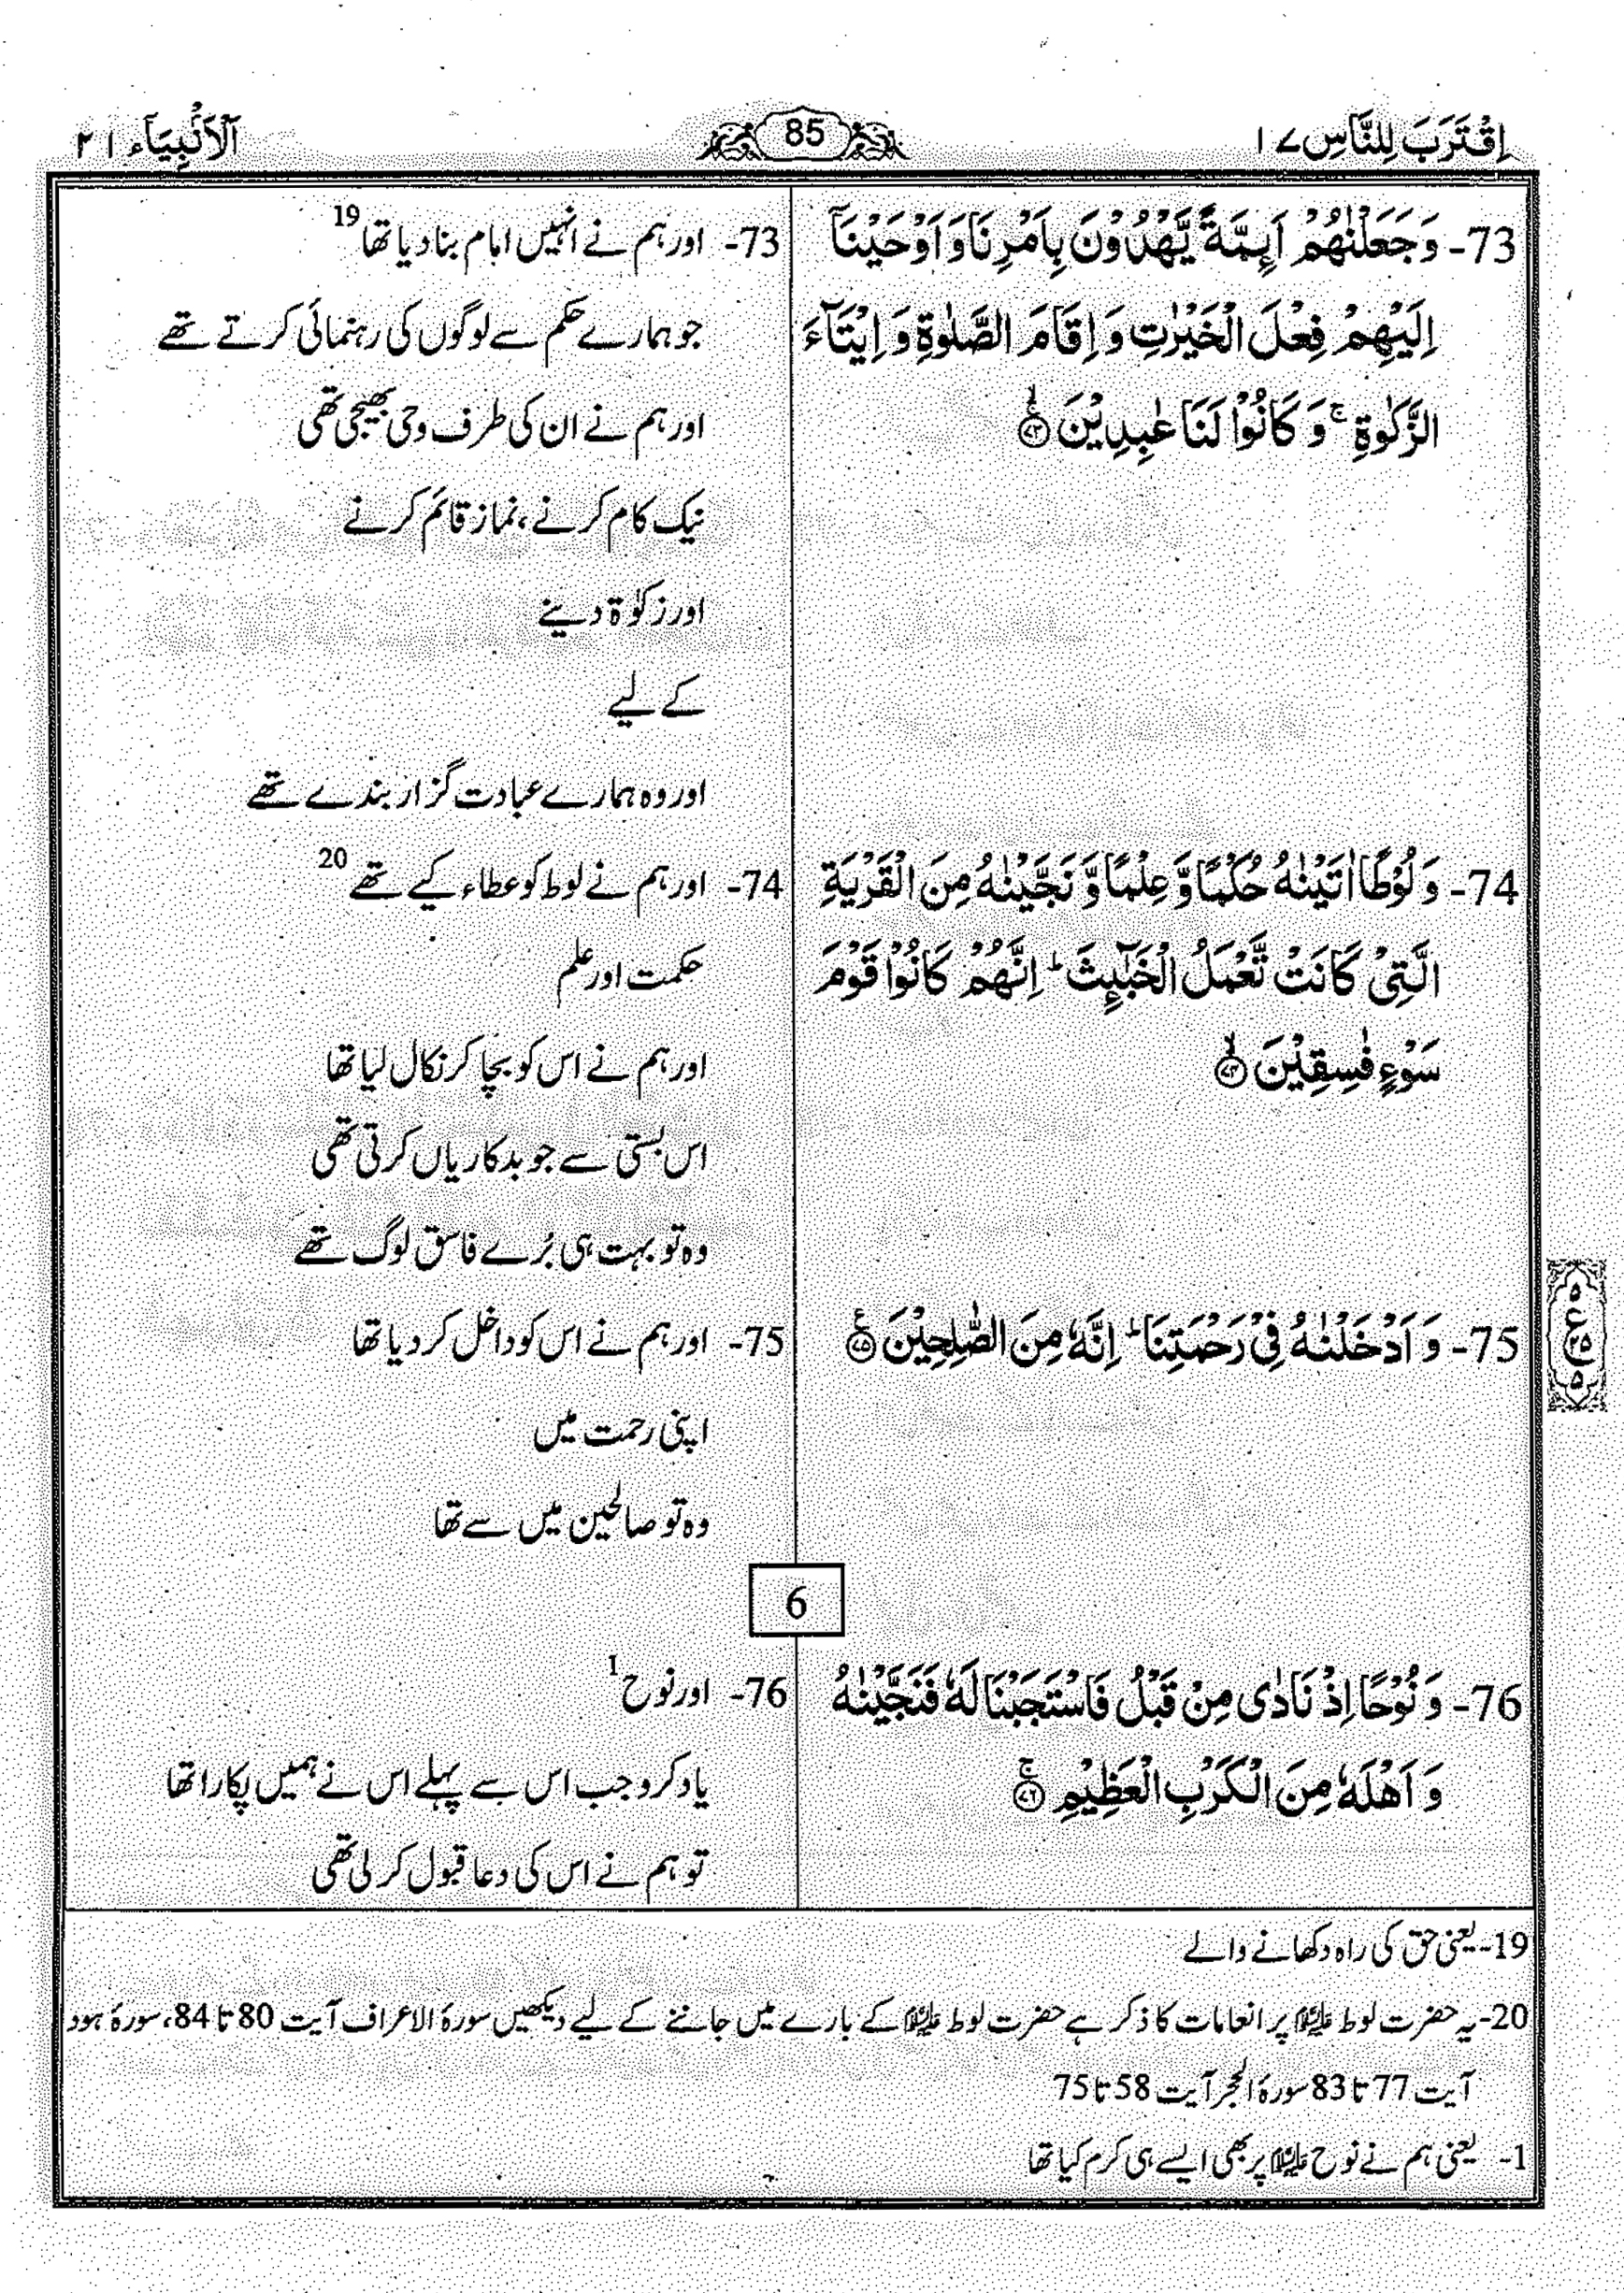 اِقْتَرَبَ لِلنَّاسِ ۱۷
85
اَلْاَنْۢبِيَآء ۲۱
73- وَجَعَلْنٰهُمْ اَىِٕمَّةً يَّهْدُوْنَ بِاَمْرِنَا وَاَوْحَيْنَاۤ
اِلَيْهِمْ فِعْلَ الْخَيْرٰتِ وَ اِقَامَ الصَّلٰوةِ وَ اِيْتَآءَ
الزَّكٰوةِ ۚ وَ كَانُوْا لَنَا عٰبِدِيْنَ ۙ۝۷۳
73- اور ہم نے انہیں امام بنا دیا تھا 19
جو ہمارے حکم سے لوگوں کی رہنمائی کرتے تھے
اور ہم نے ان کی طرف وحی بھیجی تھی
نیک کام کرنے، نماز قائم کرنے
اور زکوٰۃ دینے
کے لیے
اور وہ ہمارے عبادت گزار بندے تھے
74- وَ لُوْطًا اٰتَيْنٰهُ حُكْمًا وَّ عِلْمًا وَّ نَجَّيْنٰهُ مِنَ الْقَرْيَةِ
الَّتِىْ كَانَتْ تَّعْمَلُ الْخَبٰٓىِٕثَ ؕ اِنَّهُمْ كَانُوْا قَوْمَ
سَوْءٍ فٰسِقِيْنَ ۙ۝۷۴
74- اور ہم نے لوط کو عطاء کیے تھے 20
حکمت اور علم
اور ہم نے اس کو بچا کر نکال لیا تھا
اس بستی سے جو بدکاریاں کرتی تھی
وہ تو بہت ہی بُرے فاسق لوگ تھے
75- وَ اَدْخَلْنٰهُ فِىْ رَحْمَتِنَا ؕ اِنَّهٗ مِنَ الصّٰلِحِيْنَ ۝۷۵ ع
۵
ع
۲۵
۵
75- اور ہم نے اس کو داخل کر دیا تھا
اپنی رحمت میں
وہ تو صالحین میں سے تھا
6
76- وَ نُوْحًا اِذْ نَادٰى مِنْ قَبْلُ فَاسْتَجَبْنَا لَهٗ فَنَجَّيْنٰهُ
وَ اَهْلَهٗ مِنَ الْكَرْبِ الْعَظِيْمِ ۚ۝۷۶
76- اور نوح 1
یاد کرو جب اس سے پہلے اس نے ہمیں پکارا تھا
تو ہم نے اس کی دعا قبول کر لی تھی
19- یعنی حق کی راہ دکھانے والے
20- یہ حضرت لوط علیہ السلام پر انعامات کا ذکر ہے حضرت لوط علیہ السلام کے بارے میں جاننے کے لیے دیکھیں سورۂ الاعراف آیت 80 تا 84، سورۂ ہود
آیت 77 تا 83 سورۂ الحجر آیت 58 تا 75
1- یعنی ہم نے نوح علیہ السلام پر بھی ایسے ہی کرم کیا تھا